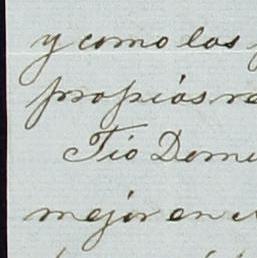 y como los
propios
Tio Dom
mejor en